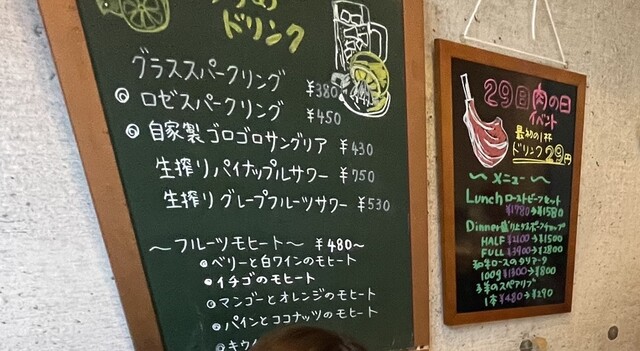 ドリンク
グラススパークリング ¥380
ロゼスパークリング ¥450
自家製ゴロゴロサングリア ¥430
生搾りパイナップルサワー ¥750
生搾りグレープフルーツサワー ¥530
〜フルーツモヒート〜 ¥480〜
ベリーと白ワインのモヒート
イチゴのモヒート
マンゴーとオレンジのモヒート
パインとココナッツのモヒート
キウ
29日肉の日
イベント
最初の1杯
ドリンク29円
〜メニュー〜
Lunch ローストビーフセット
¥1780→¥1580
Dinner 盛り
HALF ¥2100→¥1500
FULL ¥3900→¥2800
和牛ロースのタリアータ
100g ¥1300→¥800
スペアリブ
1本 ¥480→¥290